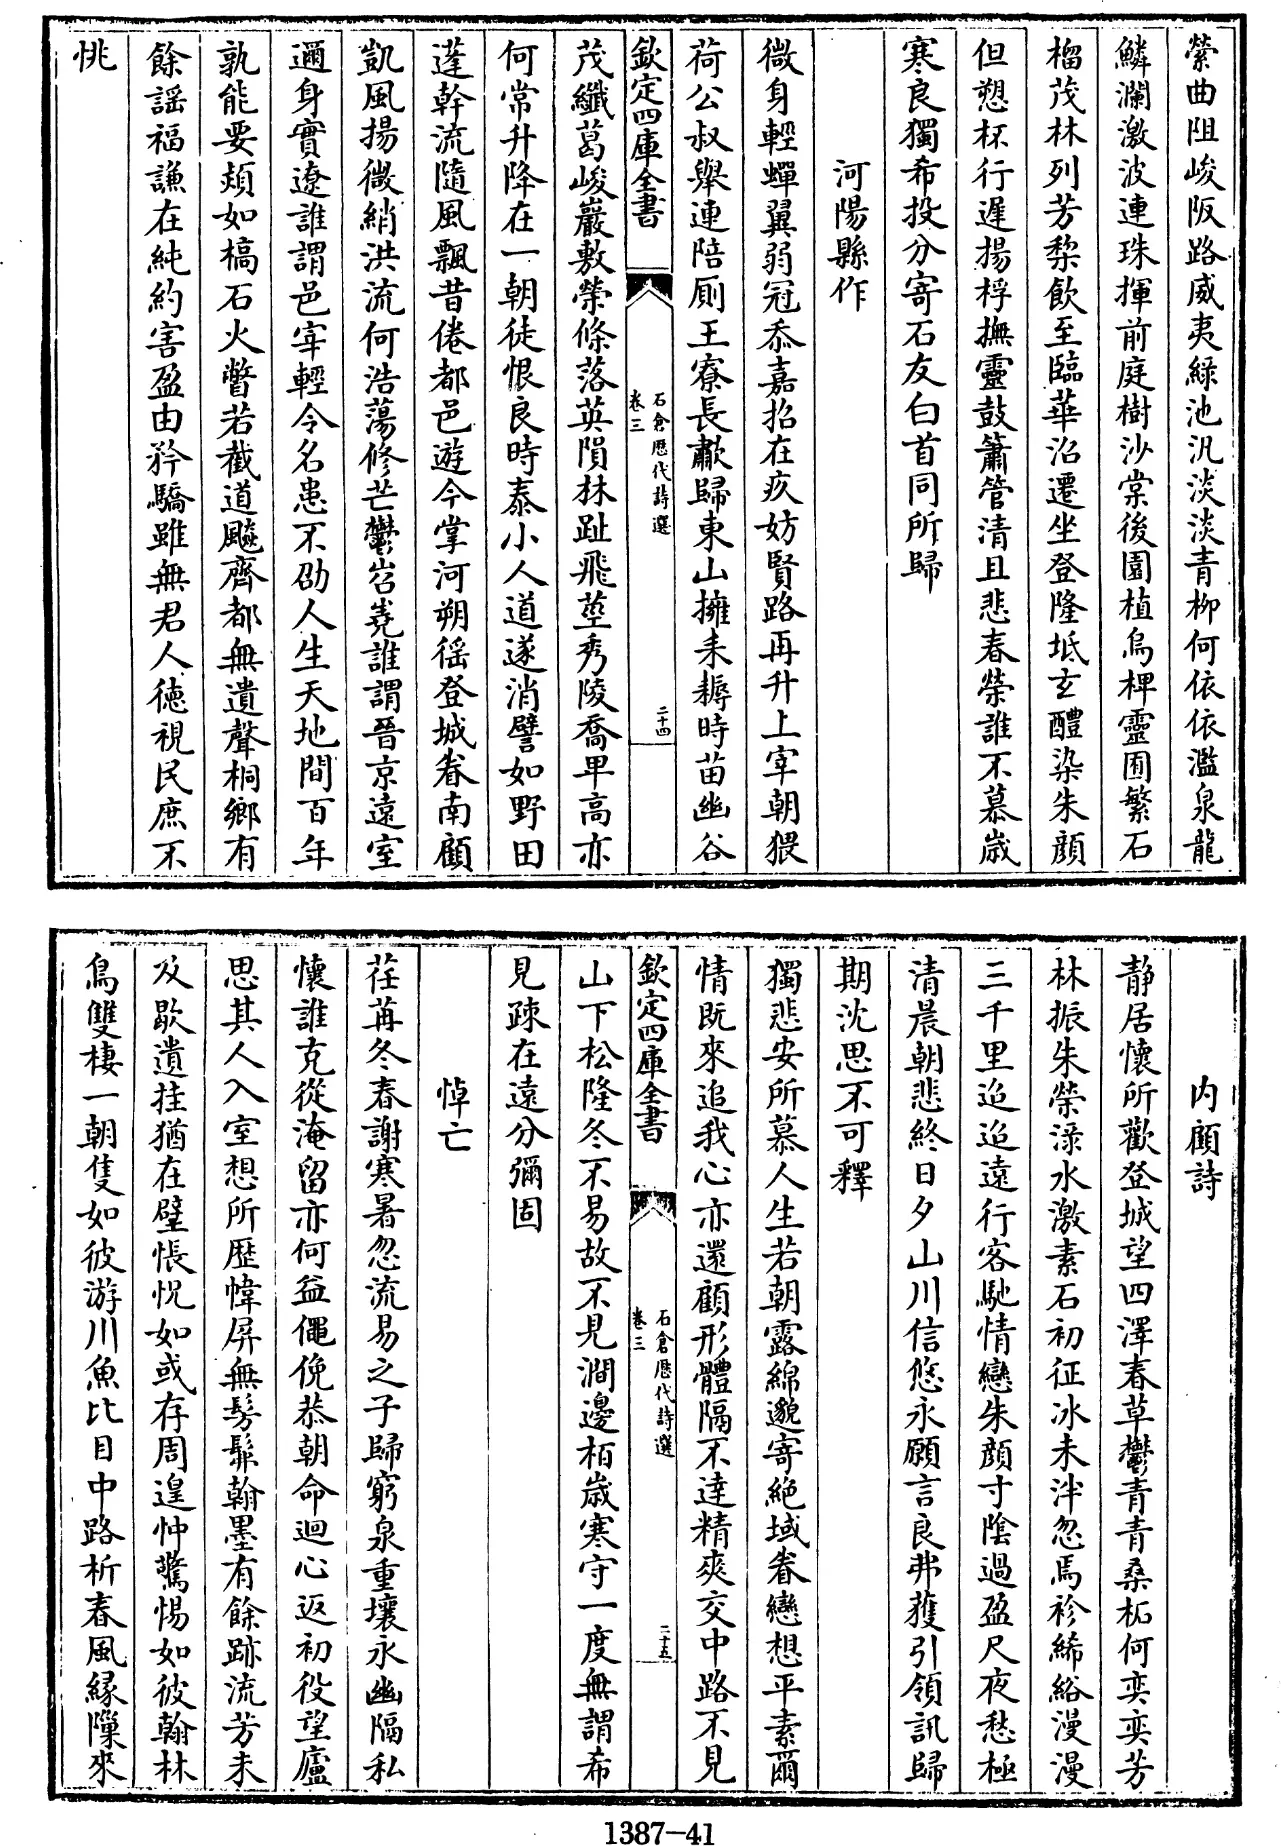 縈曲阻峻阪路威夷綠池汎淡淡青柳何依依濫泉龍
鱗瀾激波連珠揮前庭樹沙棠後園植烏椑靈囿繁石
榴茂林列芳棃飲至臨華沼遷坐登隆坻玄醴染朱顔
但愬杯行遲揚桴撫靈鼓簫管清且悲春榮誰不慕歳
寒良獨希投分寄石友白首同所歸
河陽縣作
微身輕蟬翼弱冠忝嘉招在疚妨賢路再升上宰朝猥
荷公叔舉連陪厠王寮長歗歸東山擁耒耨時苗幽谷
欽定四庫全書
石倉歷代詩選
卷三
二十四
茂纖葛峻巖敷榮條落英隕林趾飛莖秀陵喬卑髙亦
何常升降在一朝徒恨良時泰小人道遂消譬如野田
蓬幹流隨風飄昔倦都邑遊今掌河朔徭登城眷南顧
凱風揚微綃洪流何浩蕩修芒鬱岧嶤誰謂晉京遠室
邇身實遼誰謂邑宰輕令名患不劭人生天地間百年
孰能要頍如槁石火瞥若截道飇齊都無遺聲桐鄉有
餘謡福謙在純約害盈由矜驕雖無君人德視民庶不
恌
内顧詩
靜居懷所歡登城望四澤春草鬱青青桑柘何奕奕芳
林振朱榮渌水激素石初征冰未泮忽焉袗絺綌漫漫
三千里迢迢遠行客馳情戀朱顔寸陰過盈尺夜愁極
清晨朝悲終日夕山川信悠永願言良弗獲引領訊歸
期沈思不可釋
獨悲安所慕人生若朝露綿邈寄絶域眷戀想平素爾
情既來追我心亦還顧形體隔不達精爽交中路不見
欽定四庫全書
石倉歷代詩選
卷三
二十五
山下松隆冬不易故不見澗邊栢歳寒守一度無謂希
見疎在遠分彌固
悼亡
荏苒冬春謝寒暑忽流易之子歸窮泉重壤永幽隔私
懷誰克從淹留亦何益僶俛恭朝命迴心返初役望廬
思其人入室想所歴幃屏無髣髴翰墨有餘跡流芳未
及歇遺挂猶在壁悵怳如或存周遑忡驚惕如彼翰林
鳥雙棲一朝隻如彼游川魚比目中路析春風縁隟來
1387-41